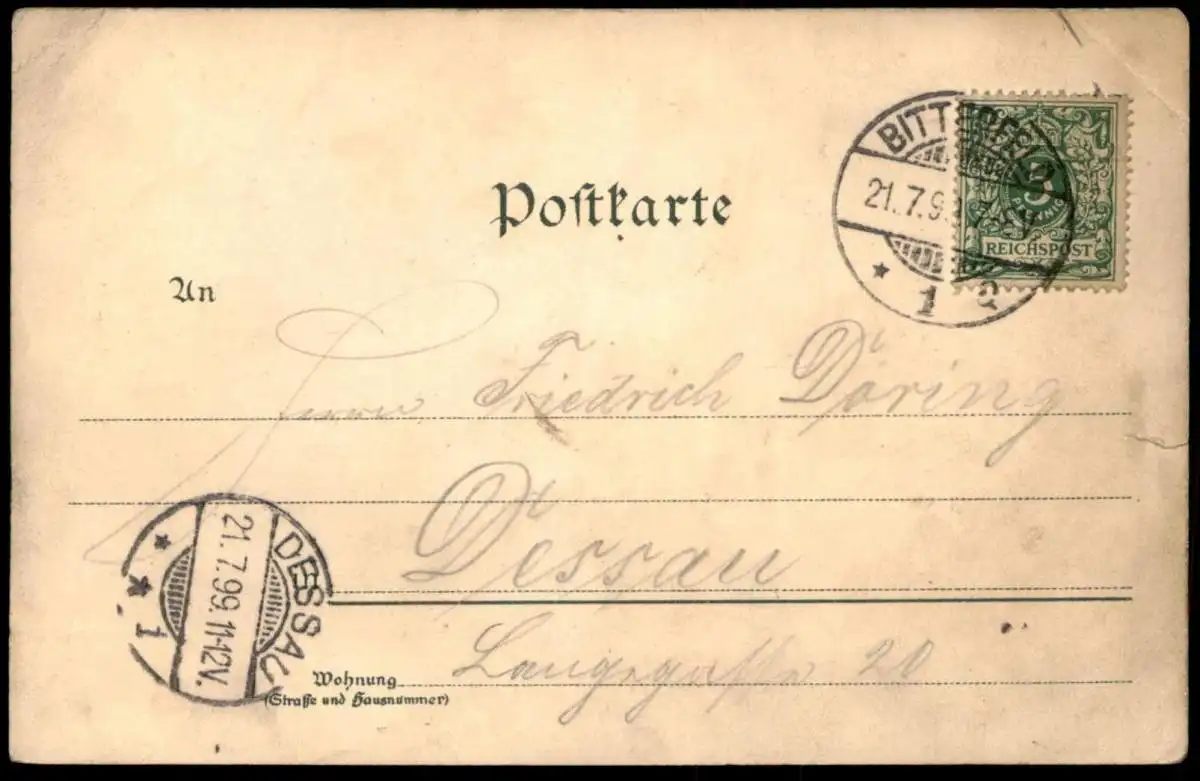 BITTERFELD
21.7.9
* 1 c
5
PFENNIG
REICHSPOST
Postkarte
An
Herrn Friedrich Döring
Dessau
Langegasse 20
Wohnung
(Straße und Hausnummer)
DESSAU
21.7.99.11-12V.
* 1